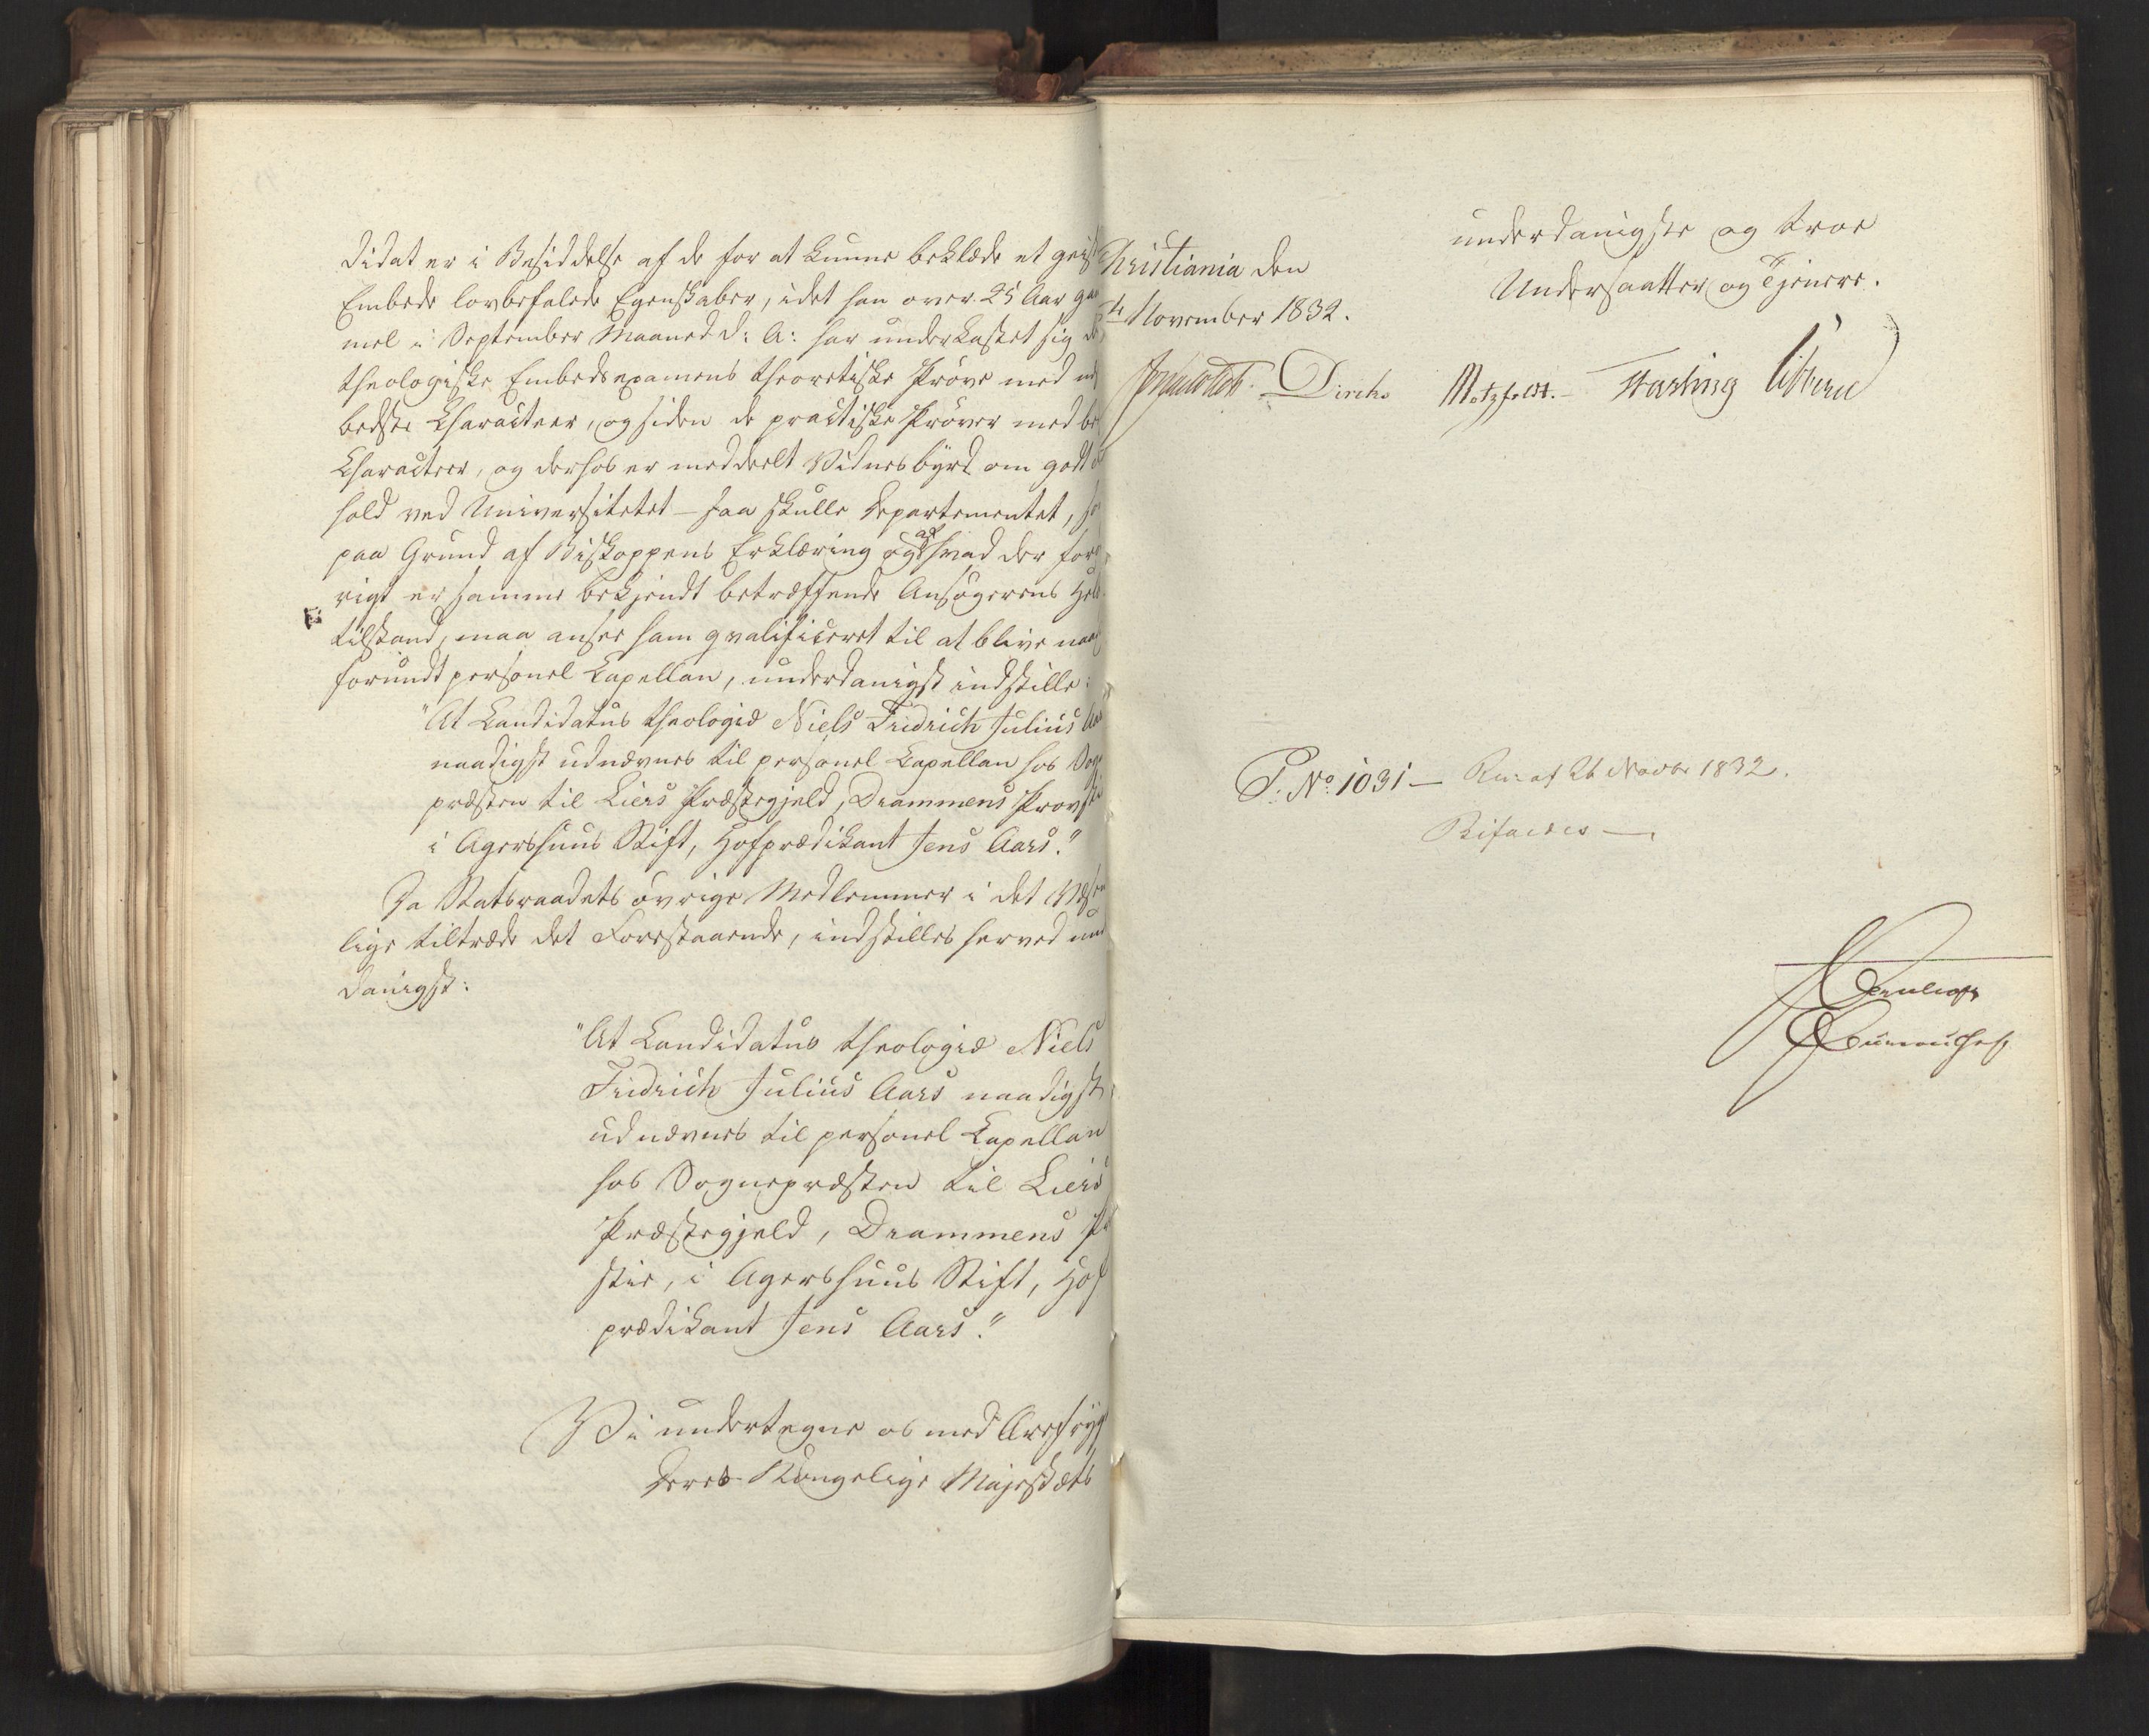 didat er i Besiddelse af de for at kunne beklæde et geist
Embede lovbefalede Egenskaber, idet han over 25 Aar gam
mel i September Maaned d: A: har underkastet sig
theologiske Embedsexamens theoretiske Prøve med
bedste Characteer, og siden de practiske Prøver med
Characteer, og derhos er meddeelt Vidnesbyrd om godt
hold ved Universitetet – saa skulle Departementet,
paa Grund af Biskoppens Erklæring og af hvad der for
rigt er samme bekjendt betræffende Ansøgerens
tilstand, maa ansee ham qvalificeret til at blive naad
forundt personel Capellan, underdanigst indstille:
"At Candidatus theologiæ Niels Fridrich Julius Aars
naadigst udnævnes til personel Capellan hos Sogne
præsten til Liers Præstegjeld, Drammens Provstie
i Agershuus Stift, Hofprædikant Jens Aars."
Da Statsraadets øvrige Medlemmer i det Væsent
lige tiltræde det Forestaaende, indstilles herved und
danigst:
"At Candidatus theologiæ Niels
Fridrich Julius Aars naadigst
udnævnes til personel Capellan
hos Sognepræsten til Liers
Præstegjeld, Drammens
stie, i Agershuus Stift, Hof
prædikant Jens Aars."
Vi undertegne os med Ærefrygt
Deres Kongelige Majestæts
underdanigste og troe
Undersaatter og Tjenere.
Christiania den
November 1832.
Diriks Motzfeldt.
P: No: 1031 – Res: af 26 Novbr 1832.
Bifaldes —